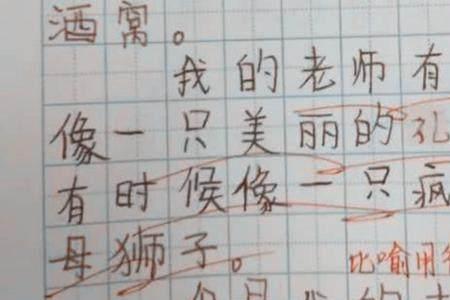 酒窝。
我的老师有
像一只美丽的孔
有时候像一只疯
母狮子。
比喻用